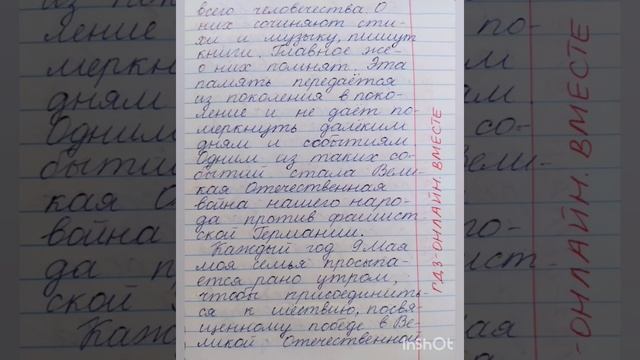 всего человечества. О
них сочиняют сти-
хи и музыку, пишут
книги. Главное же-
о них помнят. Эта
память передаётся
из поколения в поко-
ление и не даёт по-
меркнуть далёким
дням и событиям.
Одним из таких со-
бытий стала Вели-
кая Отечественная
война нашего наро-
да против фашист-
ской Германии.
Каждый год 9 Мая
моя семья просыпа-
ется рано утром,
чтобы присоединить-
ся к шествию, посвя-
щенному победе в Ве-
ликой Отечественной
ГДЗ-ОНЛАЙН. ВМЕСТЕ
InShOt